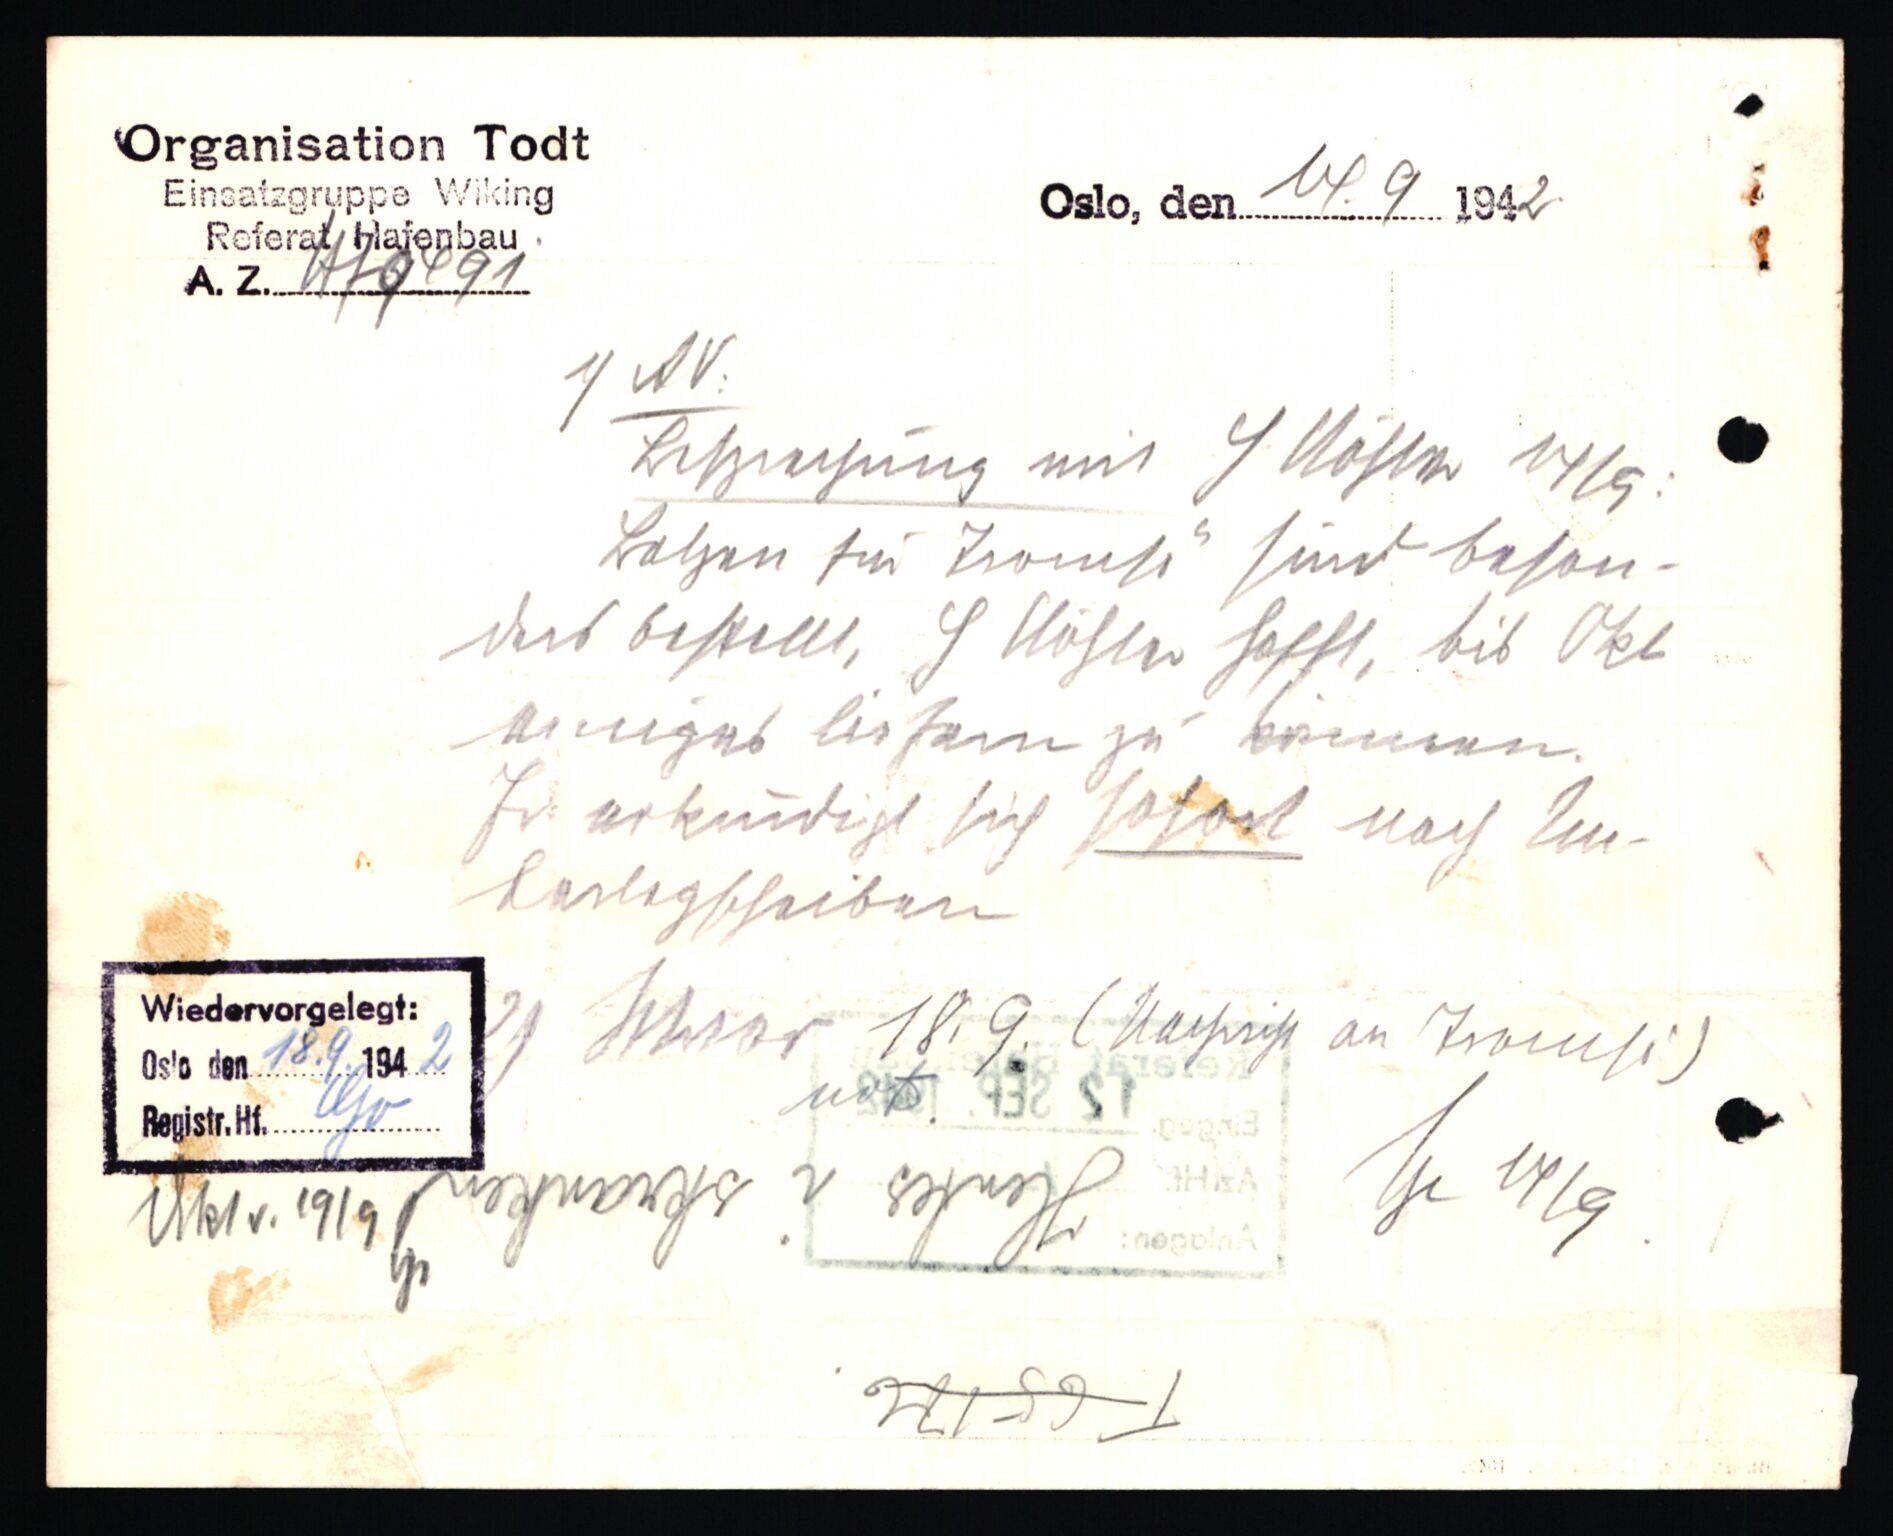 Organisation Todt
Einsatzgruppe Wiking
Referat Hafenbau
A. Z. 9491
Oslo, den 14.9 1942
1) AV:
Besprechung mit H Köhler 14/9:
Bolzen für Tromsö" sind beson-
ders bestellt, H Köhler hofft, bis Okt
einiges liefern zu können.
Er erkundigt sich sofort nach Un-
terlegscheiben
2) 18.9. (Nachricht an Tromsö)
not.
14/9
Wiedervorgelegt:
Oslo den 18.9. 1942
Registr. Hf.
19/9
Referat Hafenbau
12 SEP. 1942
Eingeg.
Az: Hf.
Anlagen: